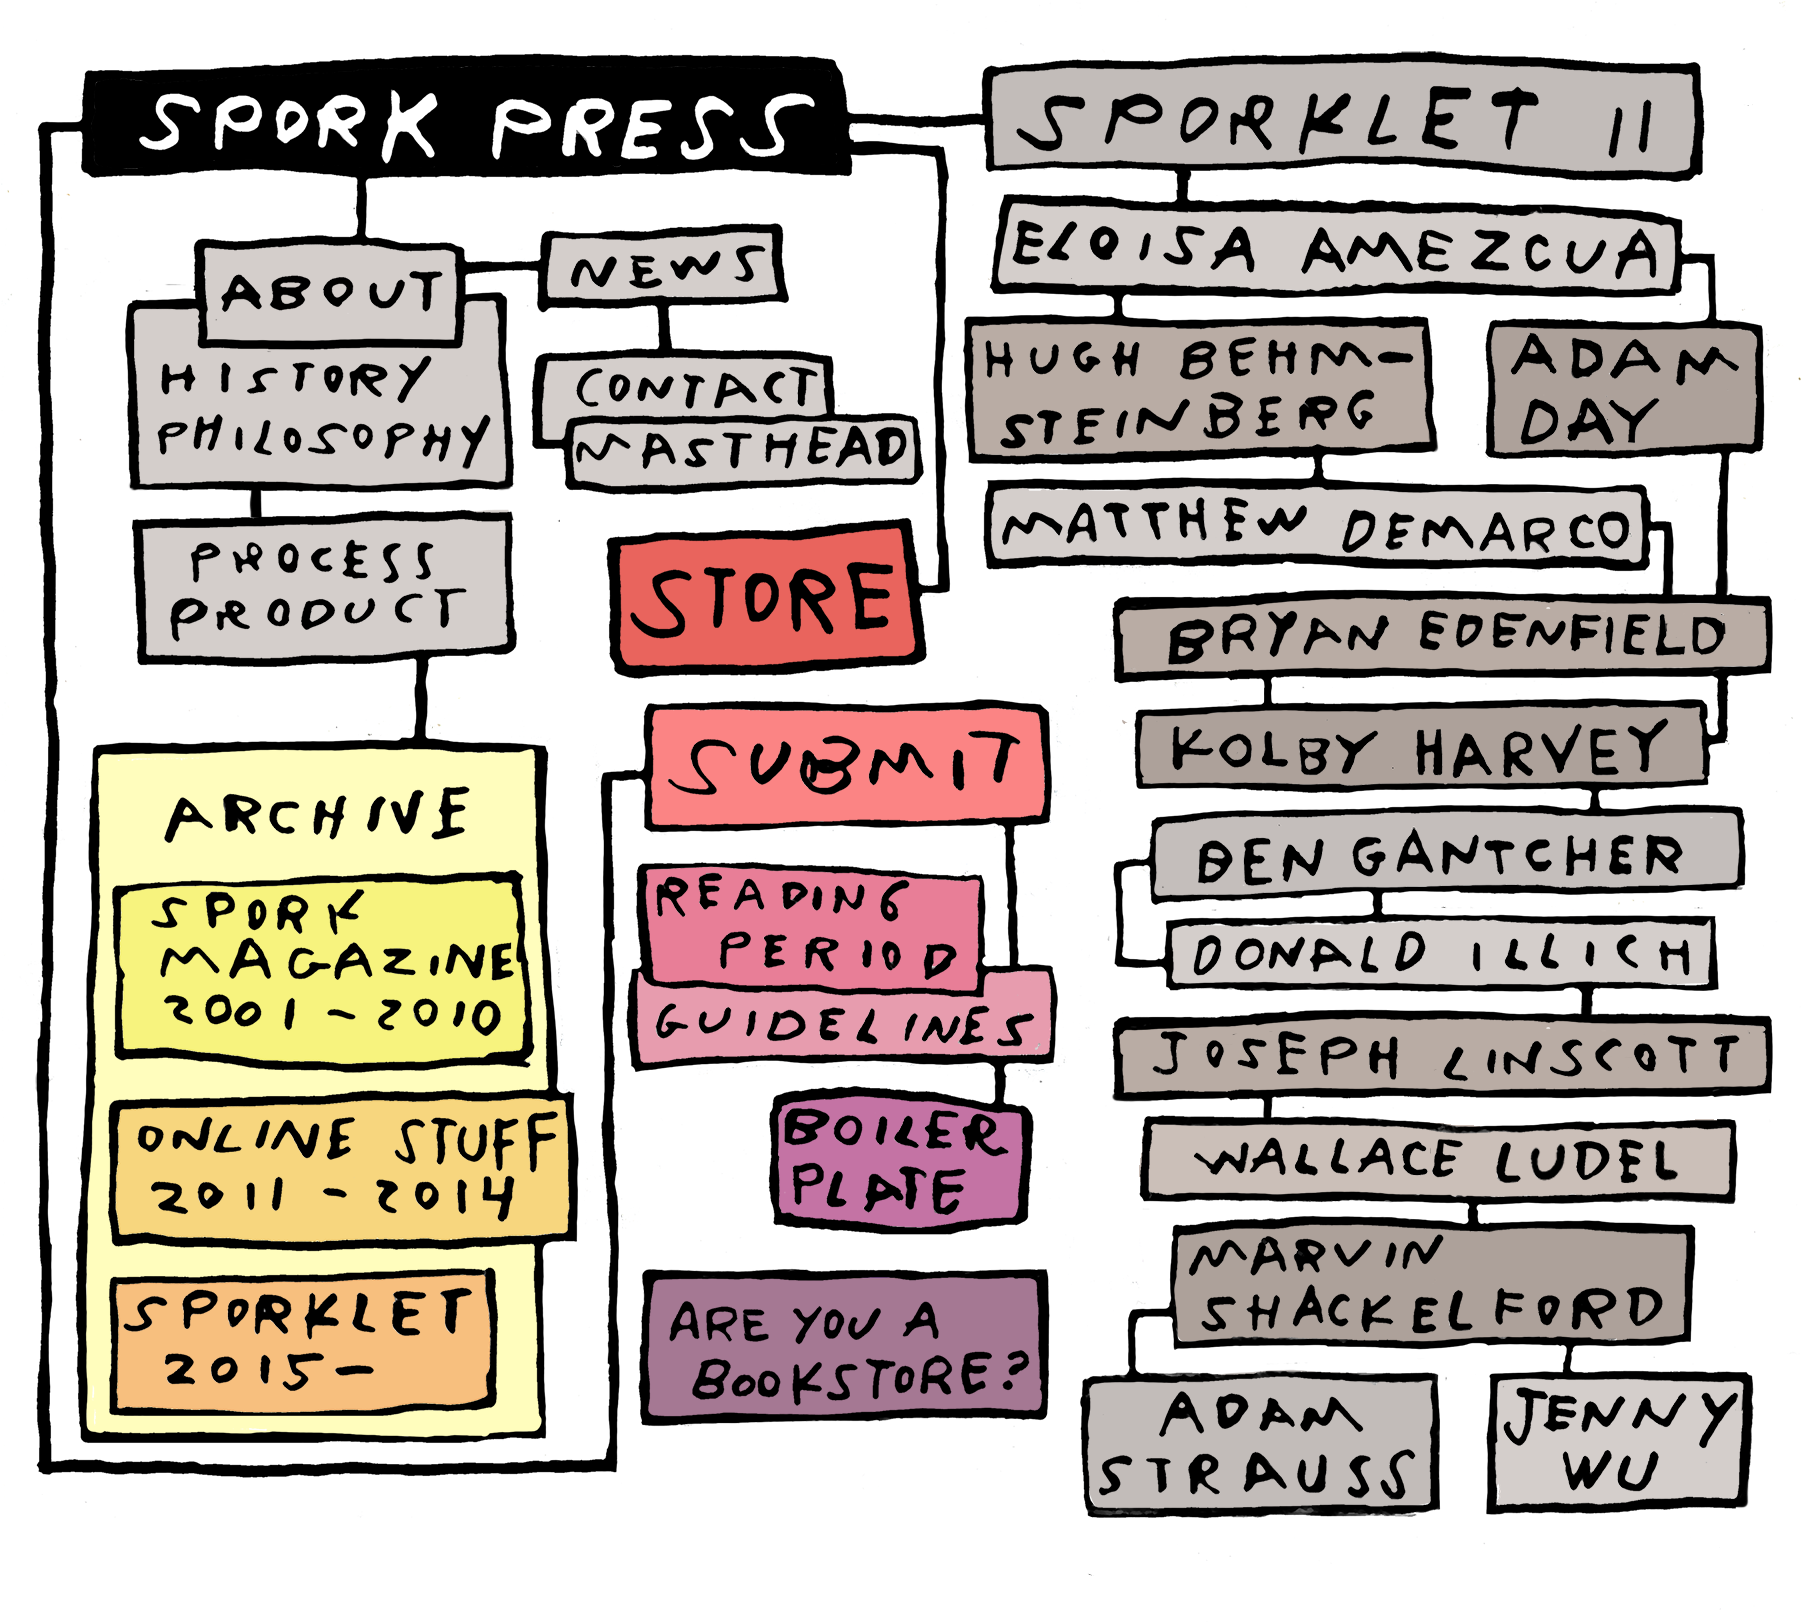 SPORK PRESS
ABOUT
NEWS
HISTORY
PHILOSOPHY
CONTACT
MASTHEAD
PROCESS
PRODUCT
STORE
ARCHIVE
SPORK
MAGAZINE
2001-2010
ONLINE STUFF
2011-2014
SPORKLET
2015-
SUBMIT
READING
PERIOD
GUIDELINES
BOILER
PLATE
ARE YOU A
BOOKSTORE?
SPORKLET 11
ELOISA AMEZCUA
HUGH BEHM-
STEINBERG
ADAM
DAY
MATTHEW DEMARCO
BRYAN EDENFIELD
KOLBY HARVEY
BEN GANTCHER
DONALD ILLICH
JOSEPH LINSCOTT
WALLACE LUDEL
MARVIN
SHACKELFORD
ADAM
STRAUSS
JENNY
WU